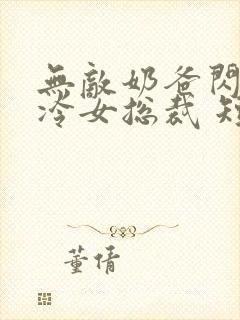 無敵奶爸閃
冷女總裁
董倩